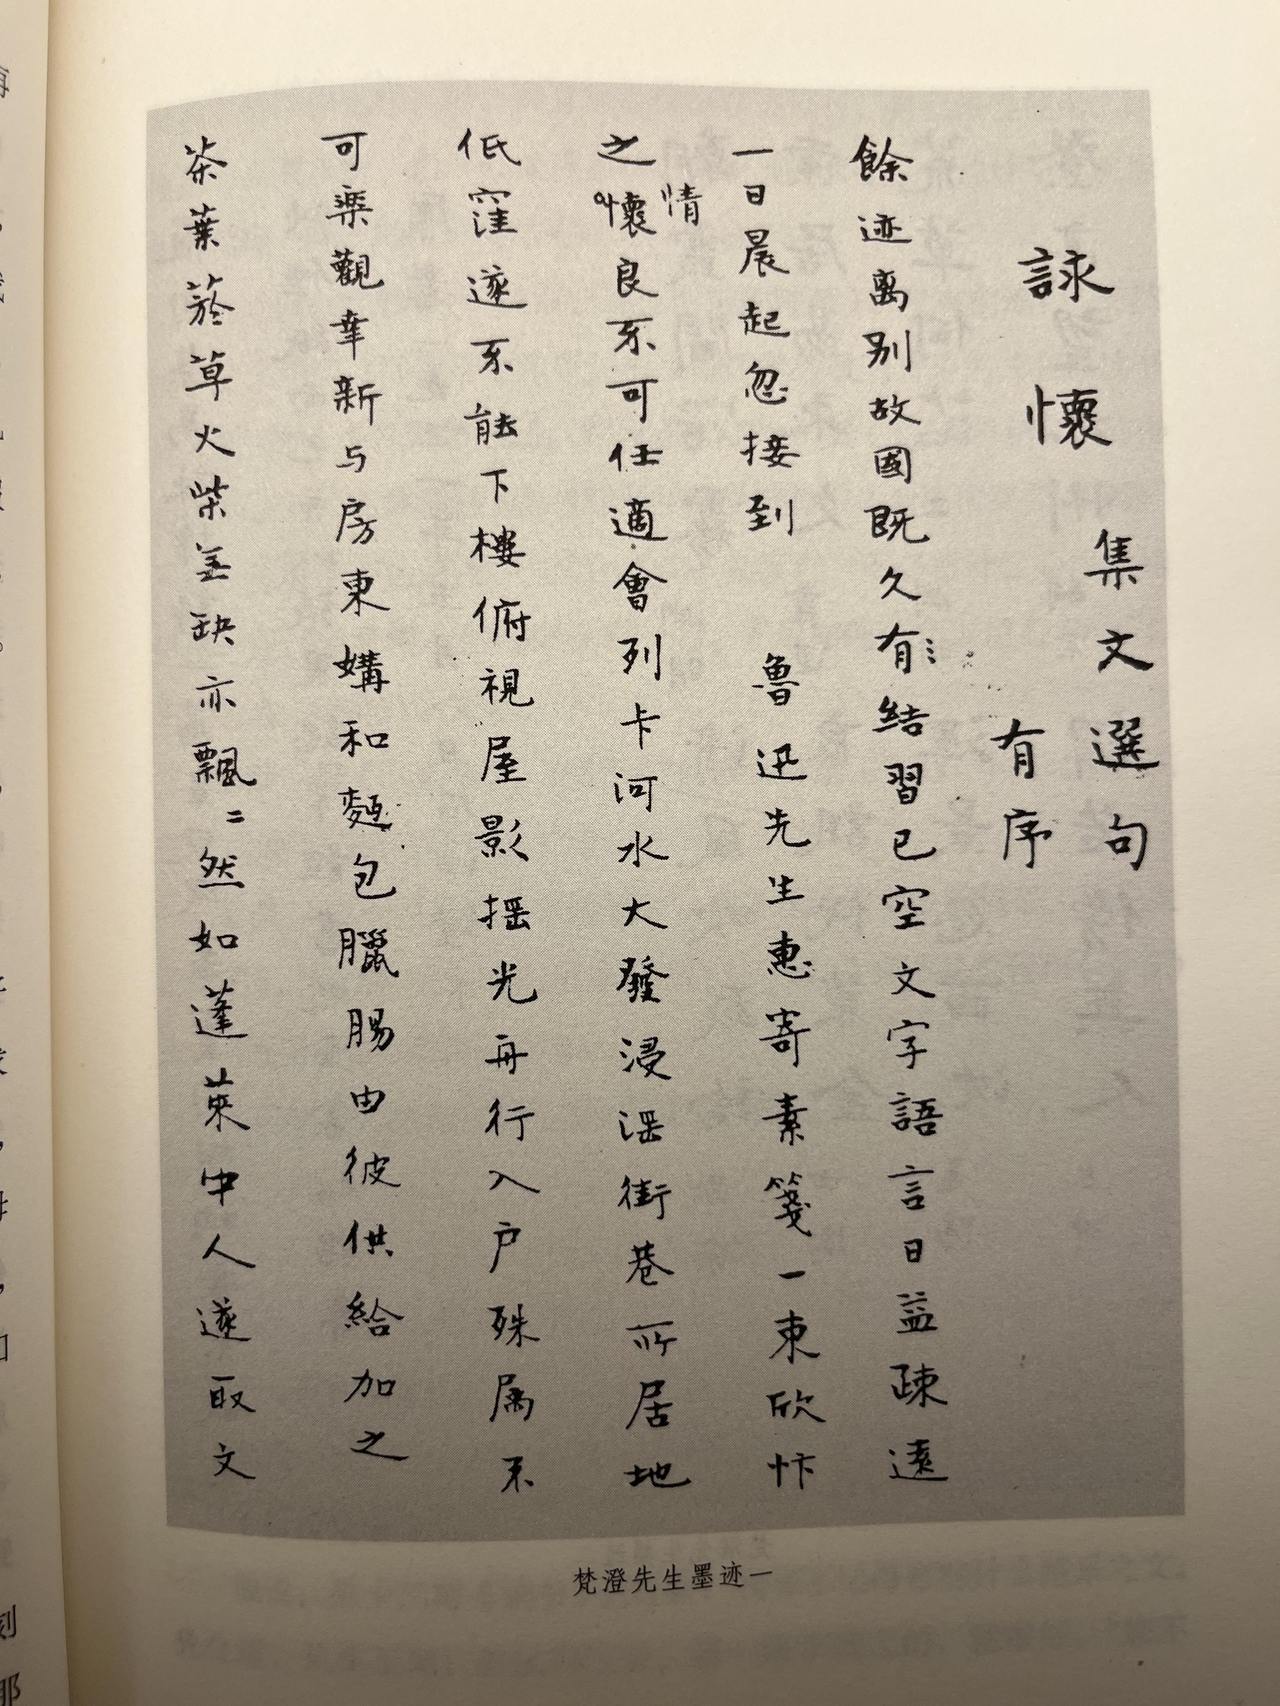 詠懷
集文選句
有序
餘迹离别故國既久有結習已空文字語言日益疎遠
一日晨起忽接到 魯迅先生惠寄素箋一束欣忭
之懷情良不可任適會列卡河水大發浸淫街巷所居地
低窪遂不能下樓俯視屋影摇光舟行入户殊属不
可樂觀幸新与房東媾和麵包臘腸由彼供給加之
茶葉菸草火柴缺亦飄〻然如蓬萊中人遂取文
梵澄先生墨迹一